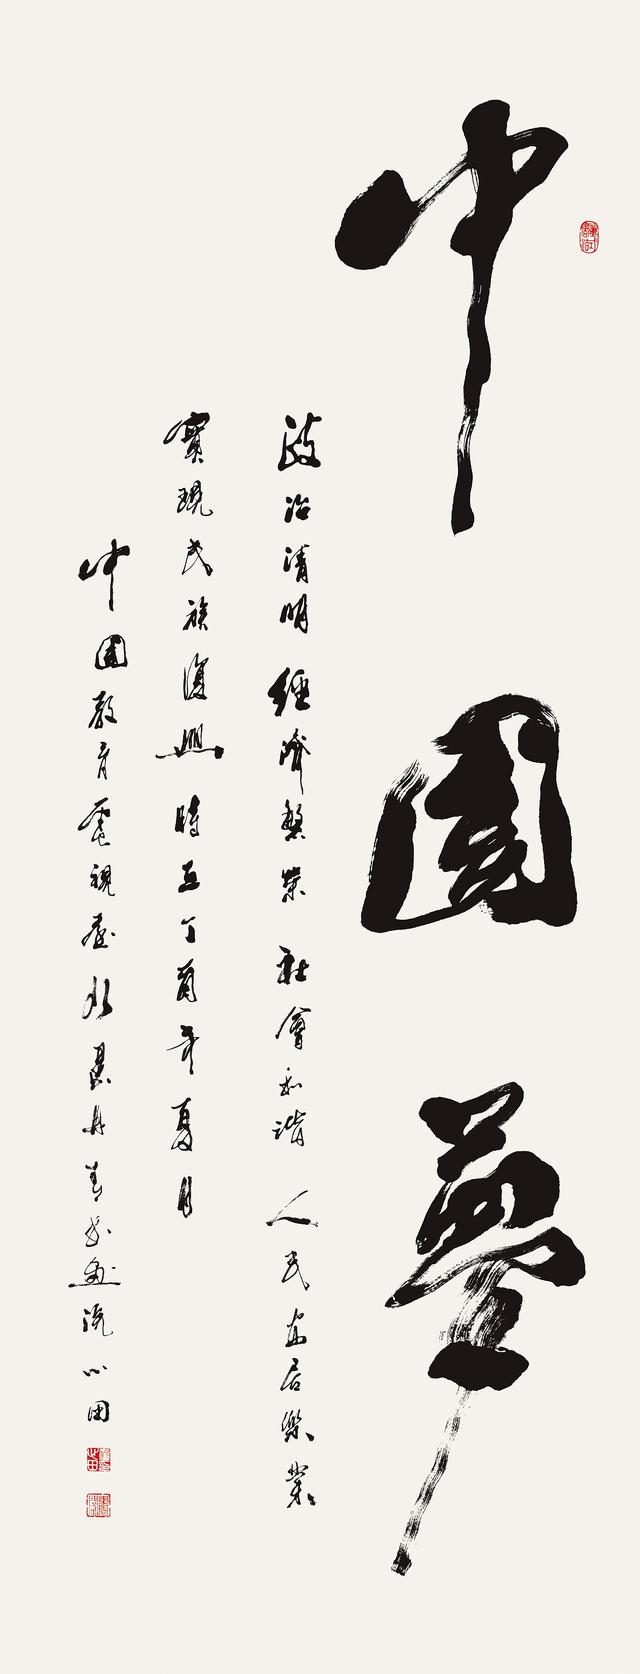 中國夢
政治清明經濟繁榮社會和諧人民安居樂業
實現民族復興時在丁酉年夏月
中國教育電視臺水墨丹青書畫院心田